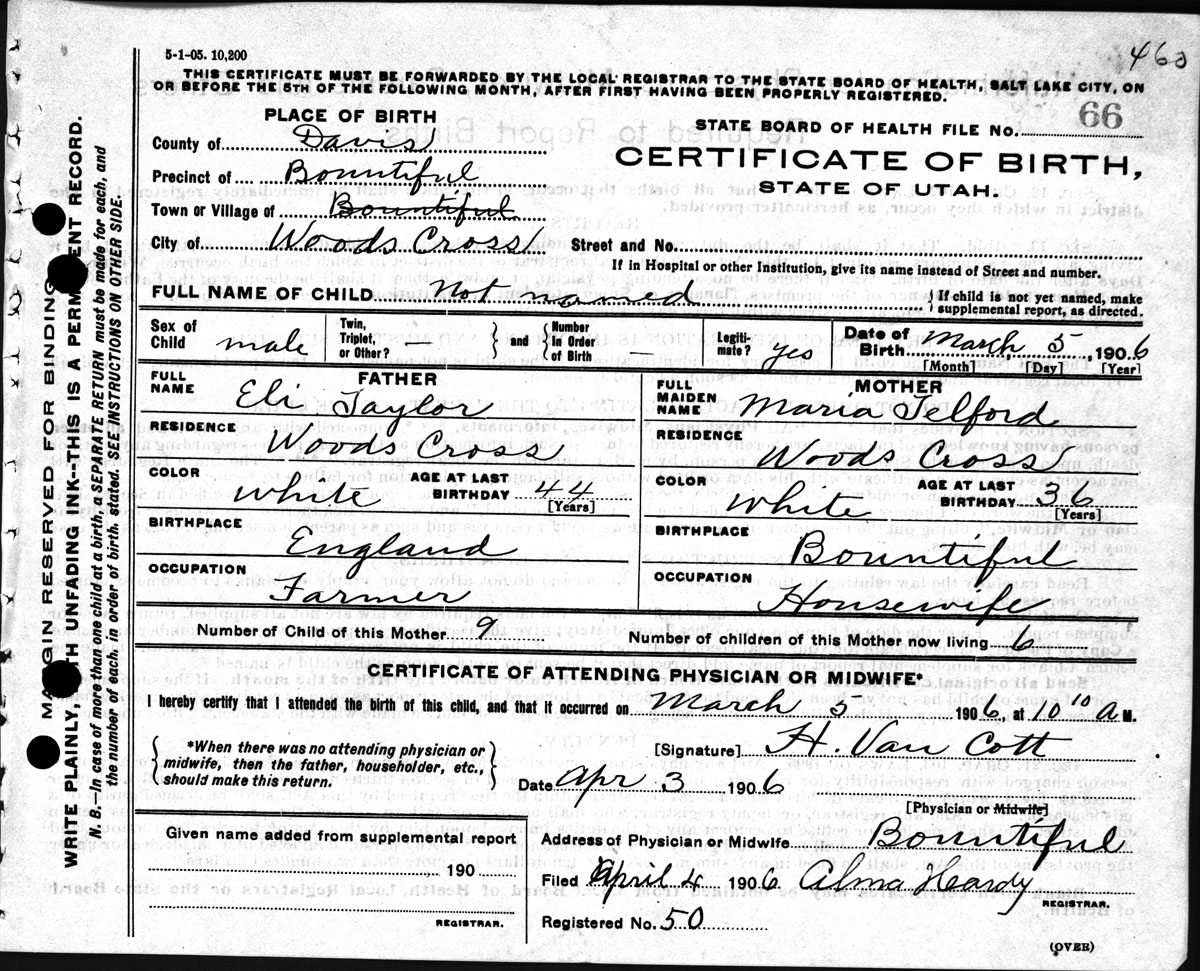 5-1-05. 10,200
460
THIS CERTIFICATE MUST BE FORWARDED BY THE LOCAL REGISTRAR TO THE STATE BOARD OF HEALTH, SALT LAKE CITY, ON
OR BEFORE THE 5TH OF THE FOLLOWING MONTH, AFTER FIRST HAVING BEEN PROPERLY REGISTERED.
PLACE OF BIRTH
County of Davis
Precinct of Bountiful
Town or Village of Bountiful
City of Woods Cross
STATE BOARD OF HEALTH FILE No. 66
CERTIFICATE OF BIRTH,
STATE OF UTAH.
Street and No.
If in Hospital or other Institution, give its name instead of Street and number.
FULL NAME OF CHILD Not named
{ If child is not yet named, make
supplemental report, as directed.
Sex of Child male
Twin, Triplet, or Other? } and { Number In Order of Birth —
Legiti- mate? yes
Date of Birth March 5, 1906
[Month] [Day] [Year]
FATHER
FULL NAME Eli Taylor
RESIDENCE Woods Cross
COLOR White AGE AT LAST BIRTHDAY 44
[Years]
BIRTHPLACE England
OCCUPATION Farmer
MOTHER
FULL MAIDEN NAME Maria Telford
RESIDENCE Woods Cross
COLOR White AGE AT LAST BIRTHDAY 36
[Years]
BIRTHPLACE Bountiful
OCCUPATION Housewife
Number of Child of this Mother 9
Number of children of this Mother now living 6
CERTIFICATE OF ATTENDING PHYSICIAN OR MIDWIFE*
I hereby certify that I attended the birth of this child, and that it occurred on March 5 1906, at 10 10 A M.
{ *When there was no attending physician or
midwife, then the father, householder, etc.,
should make this return. }
[Signature] H. Van Cott
Date Apr 3 1906
[Physician or Midwife]
Given name added from supplemental report
190
REGISTRAR.
Address of Physician or Midwife Bountiful
Filed April 4 1906 Alma Hardy
REGISTRAR.
Registered No. 50
(OVER)
MARGIN RESERVED FOR BINDING
WRITE PLAINLY, WITH UNFADING INK--THIS IS A PERMANENT RECORD.
N. B.—In case of more than one child at a birth, a SEPARATE RETURN must be made for each, and
the number of each, in order of birth, stated. SEE INSTRUCTIONS ON OTHER SIDE.